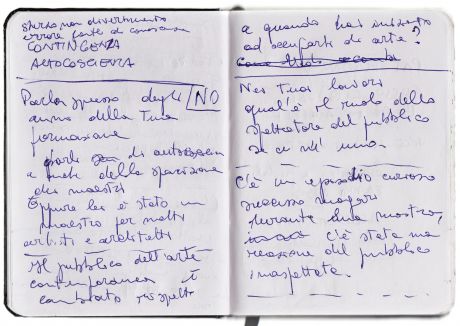 sforzo non divertimento
errore fonte di conoscenza
CONTINGENZA
AUTOCOSCIENZA
Parla spesso degli NO
anni della tua
formazione
parli di
e anche della sparizione
dei maestri
Eppure lei è stato un
maestro per molti
artisti e architetti
Il pubblico dell'arte
contemporanea è
cambiato rispetto
a quando hai iniziato
ad occuparti di arte?
Nei tuoi lavori
qual'è il ruolo dello
spettatore del pubblico
se ce n'è uno.
C'è un episodio curioso
successo magari
durante una mostra,
c'è stata una
reazione del pubblico
inaspettata.